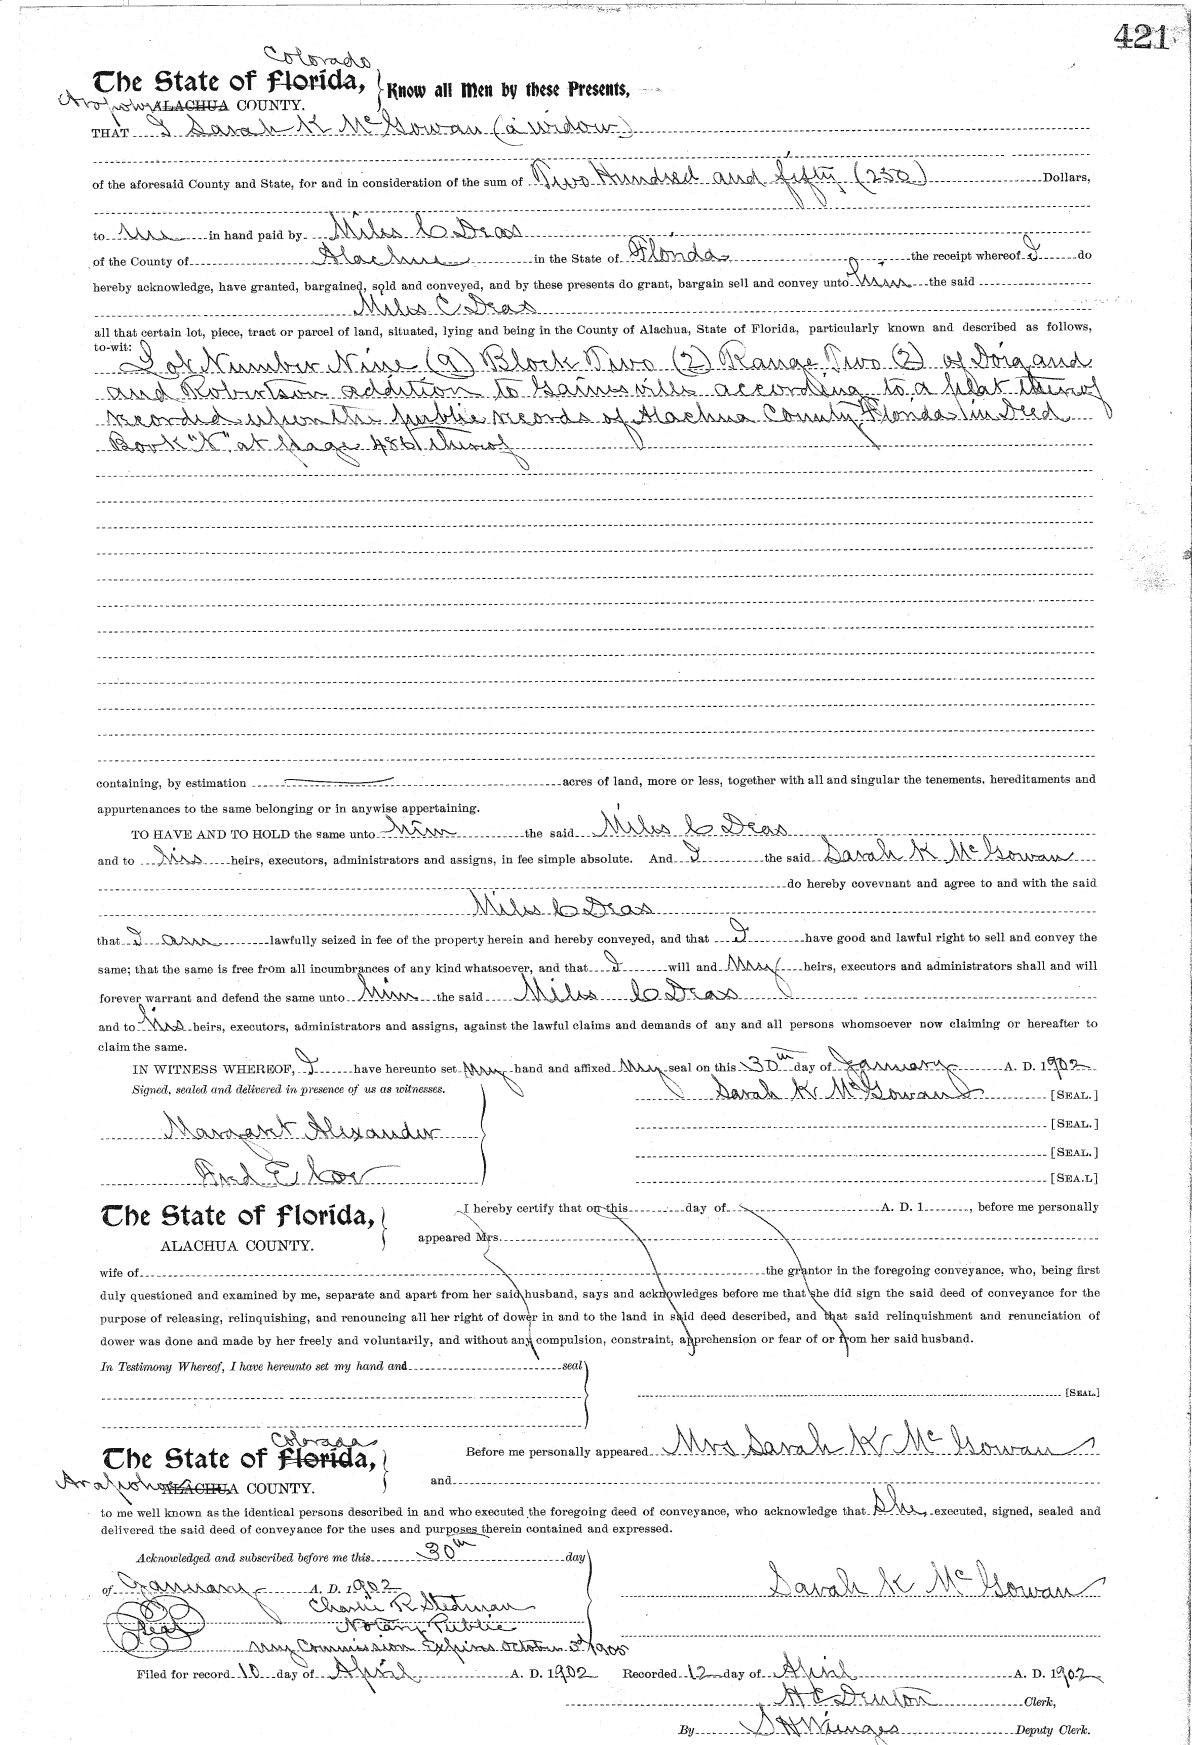 421
Colorado
The State of Florida, Know all Men by these Presents,
Arapahoe ALACHUA COUNTY.
THAT I Sarah K McGowan (a widow)
of the aforesaid County and State, for and in consideration of the sum of Two Hundred and fifty (250) Dollars,
to me in hand paid by Miles C Deas
of the County of Alachua in the State of Florida the receipt whereof I do
hereby acknowledge, have granted, bargained, sold and conveyed, and by these presents do grant, bargain sell and convey unto him the said
Miles C Deas
all that certain lot, piece, tract or parcel of land, situated, lying and being in the County of Alachua, State of Florida, particularly known and described as follows,
to-wit: Lot Number Nine (9) Block Two (2) Range Two (2) of Doig and
and Robertson addition to Gainsville according to a plat thereof
recorded upon the public records of Alachua County Florida in Deed
Book at page 486 thereof
containing, by estimation acres of land, more or less, together with all and singular the tenements, hereditaments and
appurtenances to the same belonging or in anywise appertaining.
TO HAVE AND TO HOLD the same unto him the said Miles C Deas
and to his heirs, executors, administrators and assigns, in fee simple absolute. And I the said Sarah K McGowan
do hereby covevnant and agree to and with the said
Miles C Deas
that I am lawfully seized in fee of the property herein and hereby conveyed, and that I have good and lawful right to sell and convey the
same; that the same is free from all incumbrances of any kind whatsoever, and that I will and my heirs, executors and administrators shall and will
forever warrant and defend the same unto him the said Miles C Deas
and to his heirs, executors, administrators and assigns, against the lawful claims and demands of any and all persons whomsoever now claiming or hereafter to
claim the same.
IN WITNESS WHEREOF, I have hereunto set my hand and affixed my seal on this 30th day of January A. D. 1902
Signed, sealed and delivered in presence of us as witnesses. Sarah K McGowan [SEAL.]
Margaret Alexander [SEAL.]
[SEAL.]
Fred E Cox [SEA.L]
The State of Florida, I hereby certify that on this day of A. D. 1 , before me personally
ALACHUA COUNTY. appeared Mrs.
wife of the grantor in the foregoing conveyance, who, being first
duly questioned and examined by me, separate and apart from her said husband, says and acknowledges before me that she did sign the said deed of conveyance for the
purpose of releasing, relinquishing, and renouncing all her right of dower in and to the land in said deed described, and that said relinquishment and renunciation of
dower was done and made by her freely and voluntarily, and without any compulsion, constraint, apprehension or fear of or from her said husband.
In Testimony Whereof, I have hereunto set my hand and seal
[SEAL.]
Colorado
The State of Florida, Before me personally appeared Mrs Sarah K McGowan
Arapahoe ALACHUA COUNTY. and
to me well known as the identical persons described in and who executed the foregoing deed of conveyance, who acknowledge that she executed, signed, sealed and
delivered the said deed of conveyance for the uses and purposes therein contained and expressed.
Acknowledged and subscribed before me this 30th day
of January A. D. 1902 Sarah K McGowan
Charlie R Stedman
Seal Notary Public
My Commission Expires October 5th 1905
Filed for record 10 day of April A. D. 1902 Recorded 12 day of April A. D. 1902
H C Denton Clerk,
By S H Wienges Deputy Clerk.